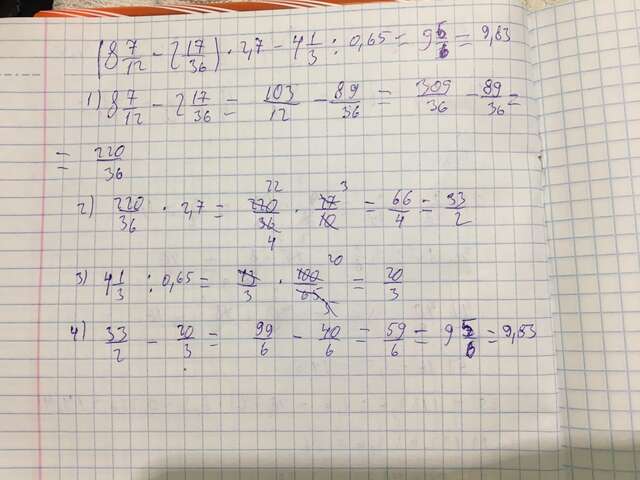 (8 7/12 - 2 17/36) · 2,7 - 4 1/3 : 0,65 = 9 5/6 = 9,83
1) 8 7/12 - 2 17/36 = 103/12 - 89/36 = 309/36 - 89/36 =
= 220/36
2) 220/36 · 2,7 = 220/36 · 27/10 = 66/4 = 33/2
3) 4 1/3 : 0,65 = 13/3 · 100/65 = 20/3
4) 33/2 - 20/3 = 99/6 - 40/6 = 59/6 = 9 5/6 = 9,83